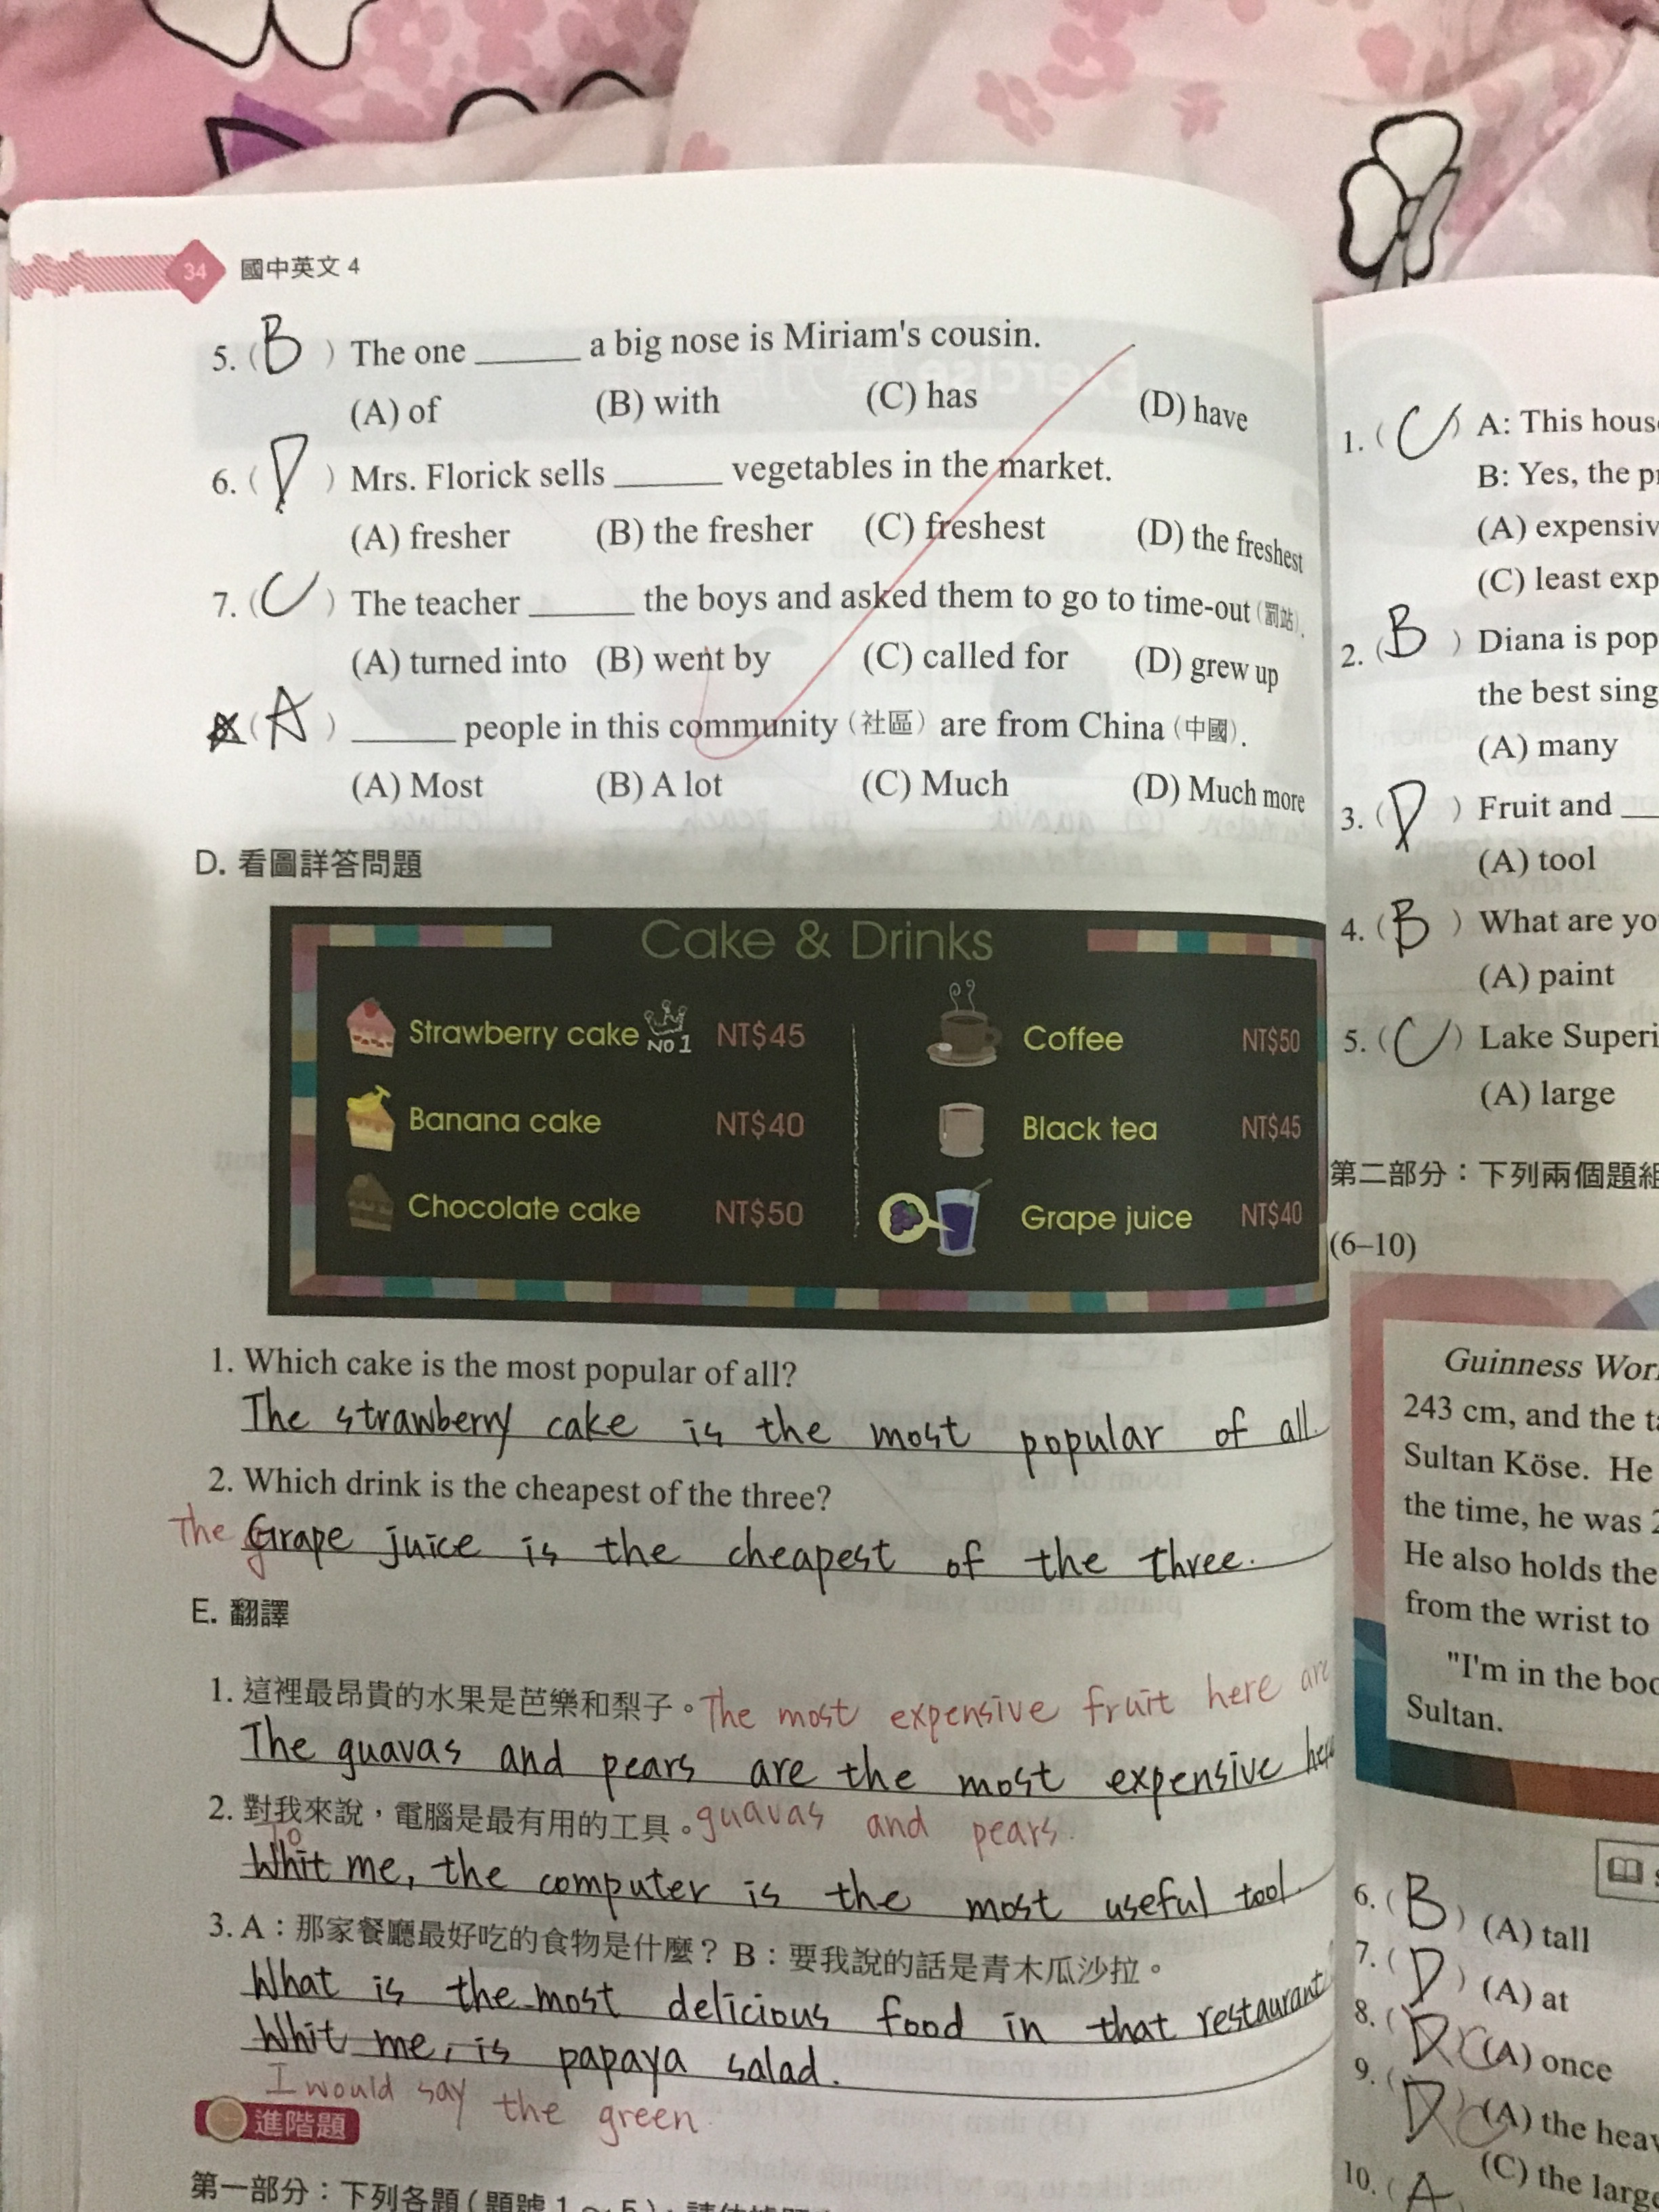 34 國中英文 4
5. ( B ) The one ______ a big nose is Miriam's cousin.
(A) of (B) with (C) has (D) have
6. ( D ) Mrs. Florick sells ______ vegetables in the market.
(A) fresher (B) the fresher (C) freshest (D) the freshest
7. ( C ) The teacher ______ the boys and asked them to go to time-out (罰站).
(A) turned into (B) went by (C) called for (D) grew up
( A ) ______ people in this community (社區) are from China (中國).
(A) Most (B) A lot (C) Much (D) Much more
D. 看圖詳答問題
Cake & Drinks
Strawberry cake NO 1 NT$45
Banana cake NT$40
Chocolate cake NT$50
Coffee NT$50
Black tea NT$45
Grape juice NT$40
1. Which cake is the most popular of all?
The strawberry cake is the most popular of all.
2. Which drink is the cheapest of the three?
The Grape juice is the cheapest of the three.
E. 翻譯
1. 這裡最昂貴的水果是芭樂和梨子。The most expensive fruit here are
The guavas and pears are the most expensive here
2. 對我來說，電腦是最有用的工具。guavas and pears.
To
Whit me, the computer is the most useful tool.
3. A：那家餐廳最好吃的食物是什麼？ B：要我說的話是青木瓜沙拉。
What is the most delicious food in that restaurant
Whit me, is papaya salad.
I would say the green
進階題
第一部分：下列各題 (題號 1 ~ 5)
1. ( C ) A: This hous
B: Yes, the p
(A) expensiv
(C) least exp
2. ( B ) Diana is pop
the best sing
(A) many
3. ( D ) Fruit and
(A) tool
4. ( B ) What are yo
(A) paint
5. ( C ) Lake Superi
(A) large
第二部分：下列兩個題組
(6–10)
Guinness Wor
243 cm, and the ta
Sultan Köse. He
the time, he was 2
He also holds the
from the wrist to
"I'm in the boo
Sultan.
6. ( B ) (A) tall
7. ( D ) (A) at
8. ( D C (A) once
9. ( D C (A) the heav
(C) the large
10. ( A